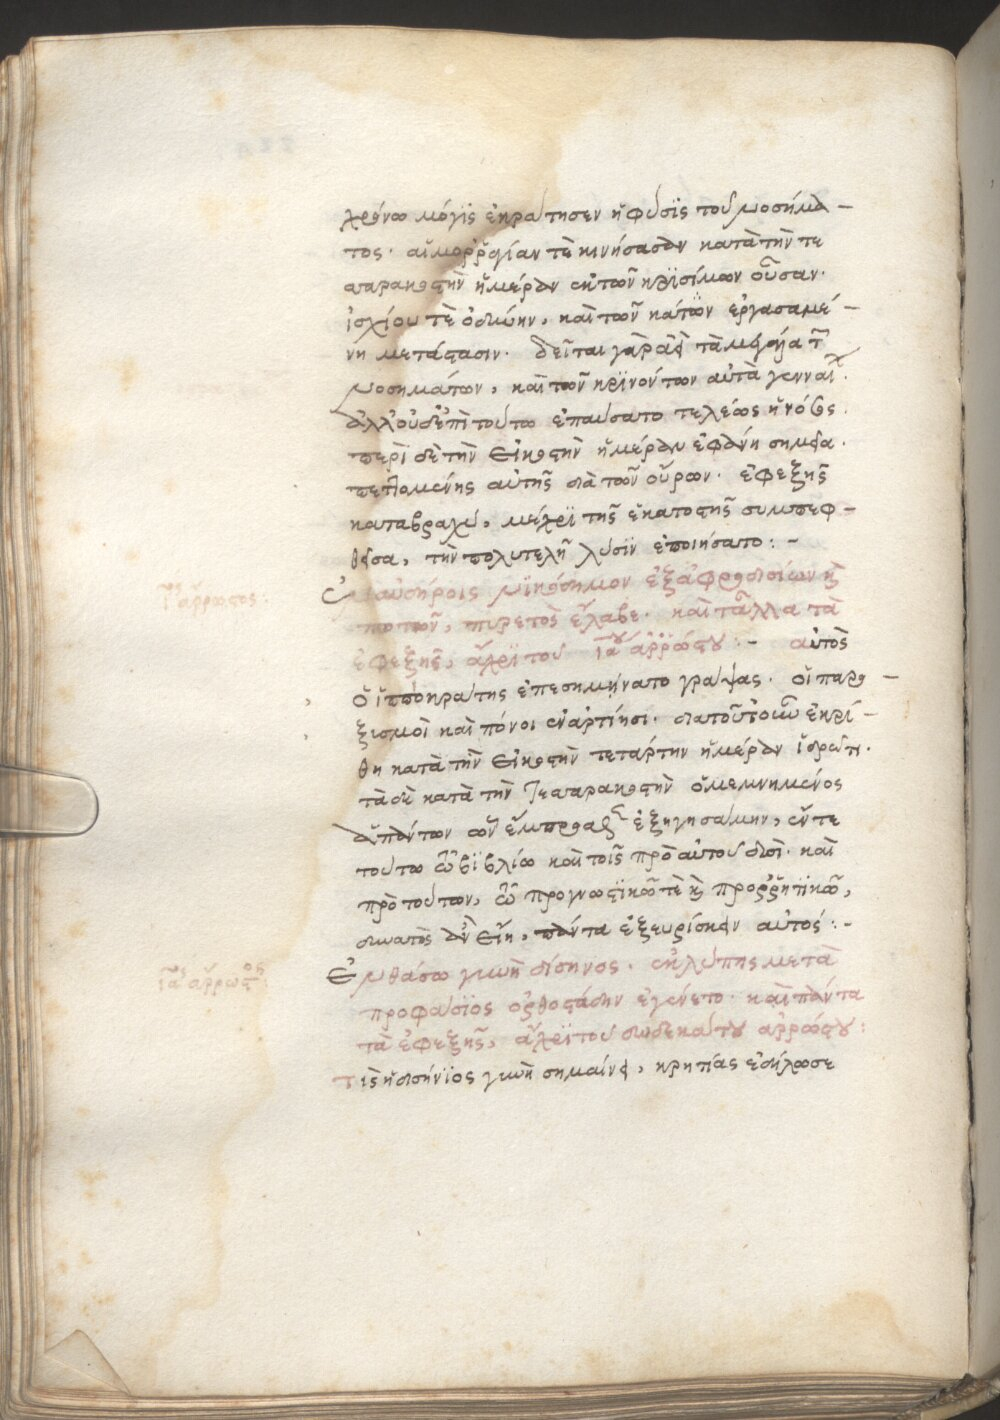 χρόνω μόγϊς ἐκράτησεν ἡ φύσϊς τοῦ νοσήμα –
τος· αἱμορραγίαν τὲ κινήσασαν κατὰ τὴν τε
σσαρακοστὴν ἡμέραν ἐκ τῶν κρϊσίμων οὖσαν·
ἰσχίου τὲ ὀδύνην, καὶ τῶν κάτω ἐργασαμέ –
νη μετάστασιν· δεῖται γὰρ ἀεὶ τὰ μεγάλα τῶν
νοσημάτων, καὶ τῶν κρϊνόντων αὐτὰ γενναίων·
ἀλλ' οὐδ' ἐπὶ τούτω ἐπαύσατο τελέως ἡ νόσος·
περὶ δὲ τὴν εἰκοστὴν ἡμέραν ἐφάνη σημεῖα
πεττομένης αὐτῆς διὰ τῶν οὔρων· ἐφεξῆς
καταβραχὺ, μέχρϊ τῆς ἑκατοστῆς συμπεφ –
θεῖσα, τὴν πολυτελῆ λύσϊν ἐποιήσατο: –
Ἐν ἀβδήροις νϊκόδημον ἐξ ἀφροδισίων καὶ
ποτῶν, πυρετὸς ἔλαβε· καὶ τἄλλα τὰ
ἐφεξῆς, ἄχρϊ τοῦ ιαου ἀρρώστου: – αὐτὸς
ὁ ἱπποκράτης ἐπεσημήνατο γράψας· οἱ παρο –
ξισμοὶ καὶ πόνοι ἐν ἀρτίησι· διὰ τοῦτο οὖν ἐκρί –
θη κατὰ τὴν εἰκοστὴν τετάρτην ἡμέραν ἱδρῶτι·
τὰ δὲ κατὰ τὴν τεσσαρακοστὴν ὁ μεμνημένος
ἁπάντων ὧν ἔμπροσθεν ἐξηγησάμην, ἔν τε
τούτω τῶ βϊβλίω καὶ τοῖς πρὸ αὐτοῦ δυσὶ· καὶ
πρὸ τούτων, τῶ προγνωστϊκῶ τὲ καὶ προρρητϊκῶ,
δυνατὸς ἂν εἴη, πάντα ἐξευρίσκειν αὐτός: –
Ἐν θάσω γυνὴ δύσηνιος· ἐκ λύπης μετὰ
προφάσϊος ὀρθοστάδην ἐγένετο· καὶ πάντα
τὰ ἐφεξῆς, ἄχρϊ τοῦ δωδεκάτου ἀρρώστου:
τὶς ἡ δυσήνϊος γυνὴ σημαίνει, κρητίας ἐδήλωσε
ιος ἄρρωστος:
ιαος ἄρρωστος: